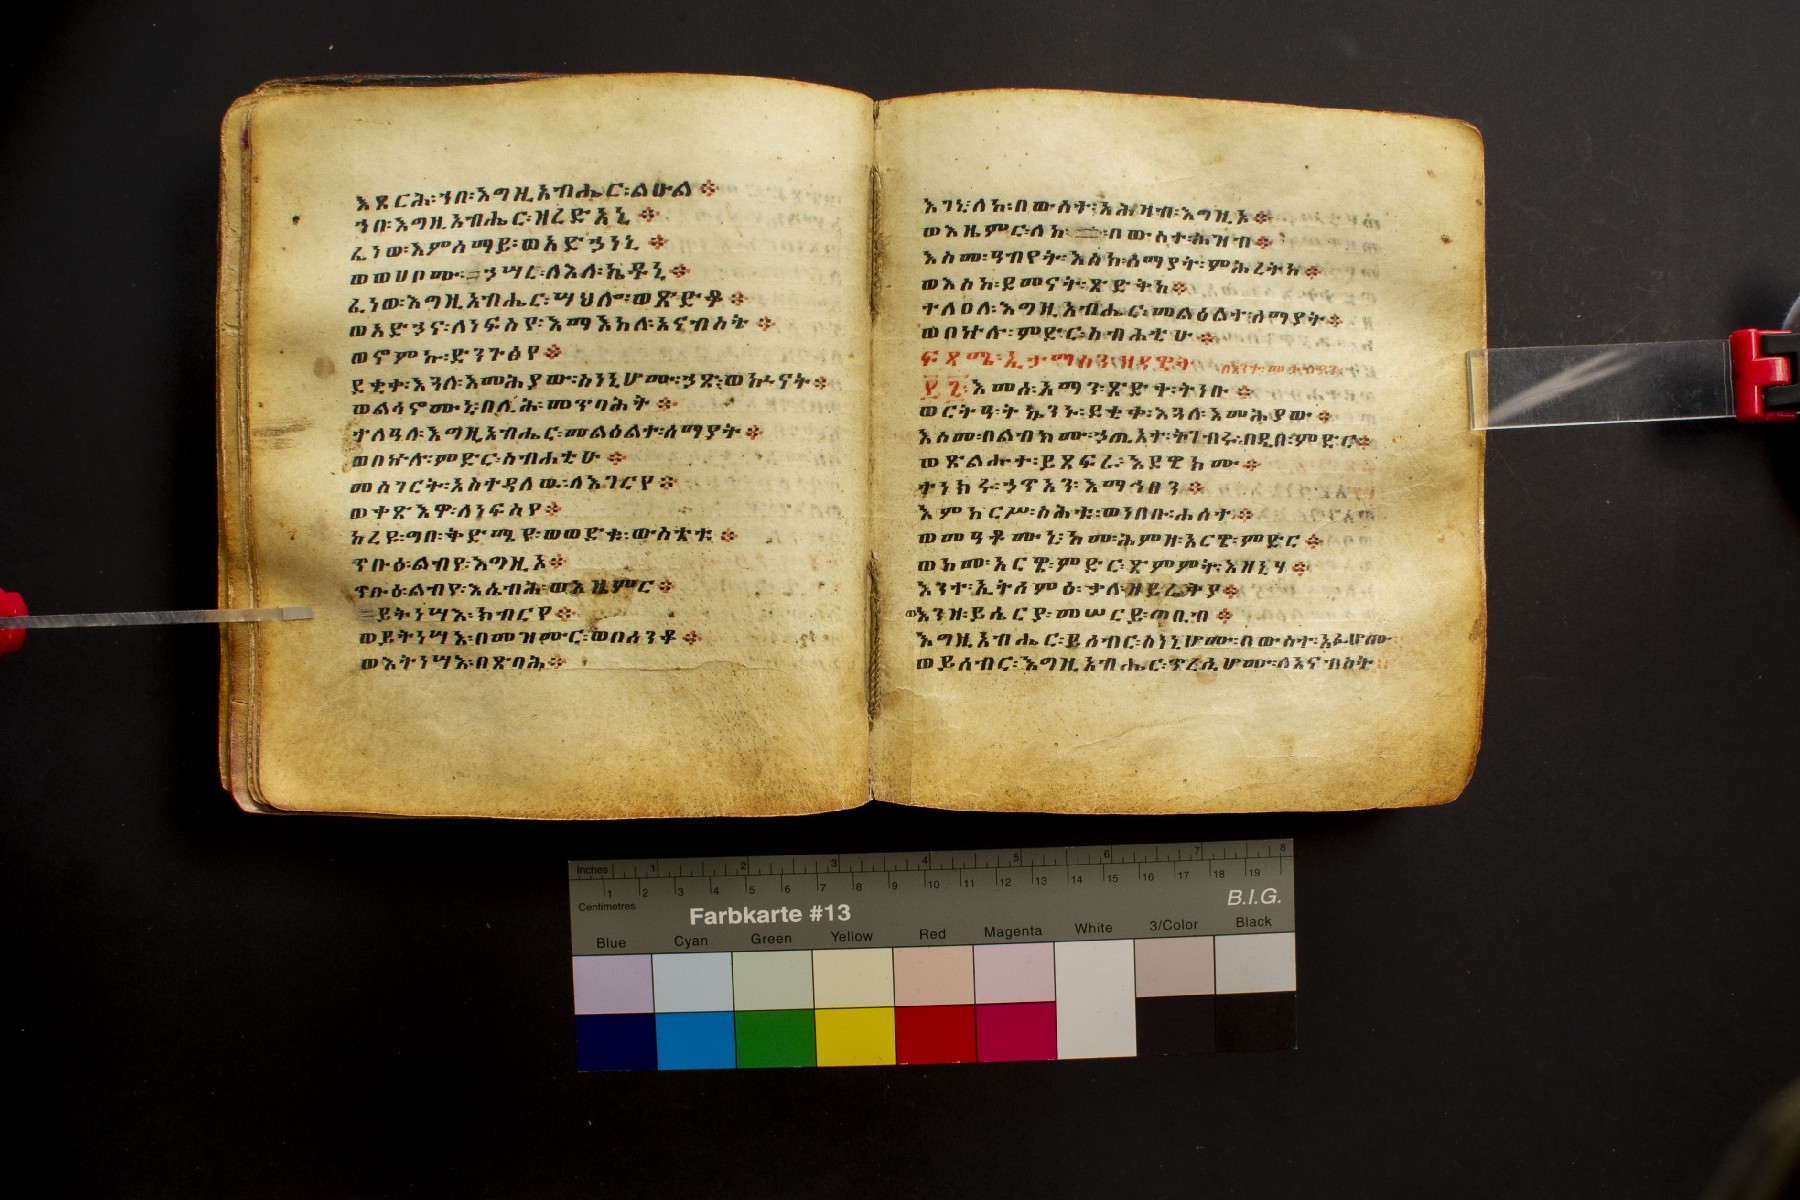 እጼርሕ፡ኀበ፡እግዚአብሔር፡ልዑል፨
ኀበ፡እግዚአብሔር፡ዘረድአኒ፨
ፈነወ፡እምሰማይ፡ወአድኃነኒ፨
ወወሀቦሙ፡ኃሣረ፡ለእለ፡ኬዱኒ፨
ፈነወ፡እግዚአብሔር፡ሣህሎ፡ወጽድቆ፨
ወአድኃና፡ለነፍስየ፡እማእከለ፡አናብስት፨
ወኖምኩ፡ድንጉፅየ፨
ደቂቀ፡እጓለ፡እመሕያው፡ስነኒሆሙ፡ኃጺ፡ወኵናት፨
ወልሳኖሙኒ፡በሊሕ፡መጥባሕት፨
ተለዓለ፡እግዚአብሔር፡መልዕልተ፡ሰማያት፨
ወበኵሉ፡ምድር፡ስብሐቲሁ፨
መስገርት፡አስተዳለዉ፡ለእገርየ፨
ወቀጽእዋ፡ለነፍስየ፨
ከረዩ፡ግበ፡ቅድሜየ፡ወወድቁ፡ውስቴቱ፨
ጥቡዕ፡ልብየ፡እግዚኦ፨
ጥቡዕ፡ልብየ፡እሴብሕ፡ወእዜምር፨
ይትነሣእ፡ክብርየ፨
ወይትነሣእ፡በመዝሙር፡ወበሰንቆ፨
ወእትነሣእ፡በጽባሕ፨
እገኒ፡ለከ፡በውስተ፡አሕዛብ፡እግዚኦ፨
ወእዜምር፡ለከ፡በውስተ፡ሕዝብ፨
እስመ፡ዓብየት፡እስከ፡ሰማያት፡ምሕረትከ፨
ወእስከ፡ደመናት፡ጽድቅከ፨
ተለዐለ፡እግዚአብሔር፡መልዕልተ፡ሰማያት፨
ወበኵሉ፡ምድር፡ስብሐቲሁ፨
ፍጻሜ፡ኢታማስን፡ዘዳዊት፡
፶፯፡እመሰ፡አማን፡ጽድቀ፡ትነቡ፨
ወርትዓ፡ትኴንኑ፡ደቂቀ፡እጓለ፡እመሕያው፨
እስመ፡በልብክሙ፡ኃጢአተ፡ትገብሩ፡በዲበ፡ምድር፨
ወጽልሑተ፡ይጸፍራ፡እደዊክሙ፨
ተነክሩ፡ኃጥኣን፡እማኅፀን፨
እምከርሥ፡ስሕቱ፡ወነበቡ፡ሐሰተ፨
ወመዓቶሙኒ፡ከመ፡ሕምዘ፡አርዌ፡ምድር፨
ወከመ፡አርዌ፡ምድር፡ጽምምት፡እዘኒሃ፨
እንተ፡ኢትሰምዕ፡ቃለ፡ዘይረቅያ፨
ወእንዘ፡ይሴርያ፡መሠርይ፡ጠቢብ፨
እግዚአብሔር፡ይሰብር፡ስነኒሆሙ፡በውስተ፡አፉሆሙ
ወይሰብር፡እግዚአብሔር፡ጥረሲሆሙ፡ለአናብስት
Inches
Centimetres
Farbkarte #13
B.I.G.
Blue Cyan Green Yellow Red Magenta White 3/Color Black